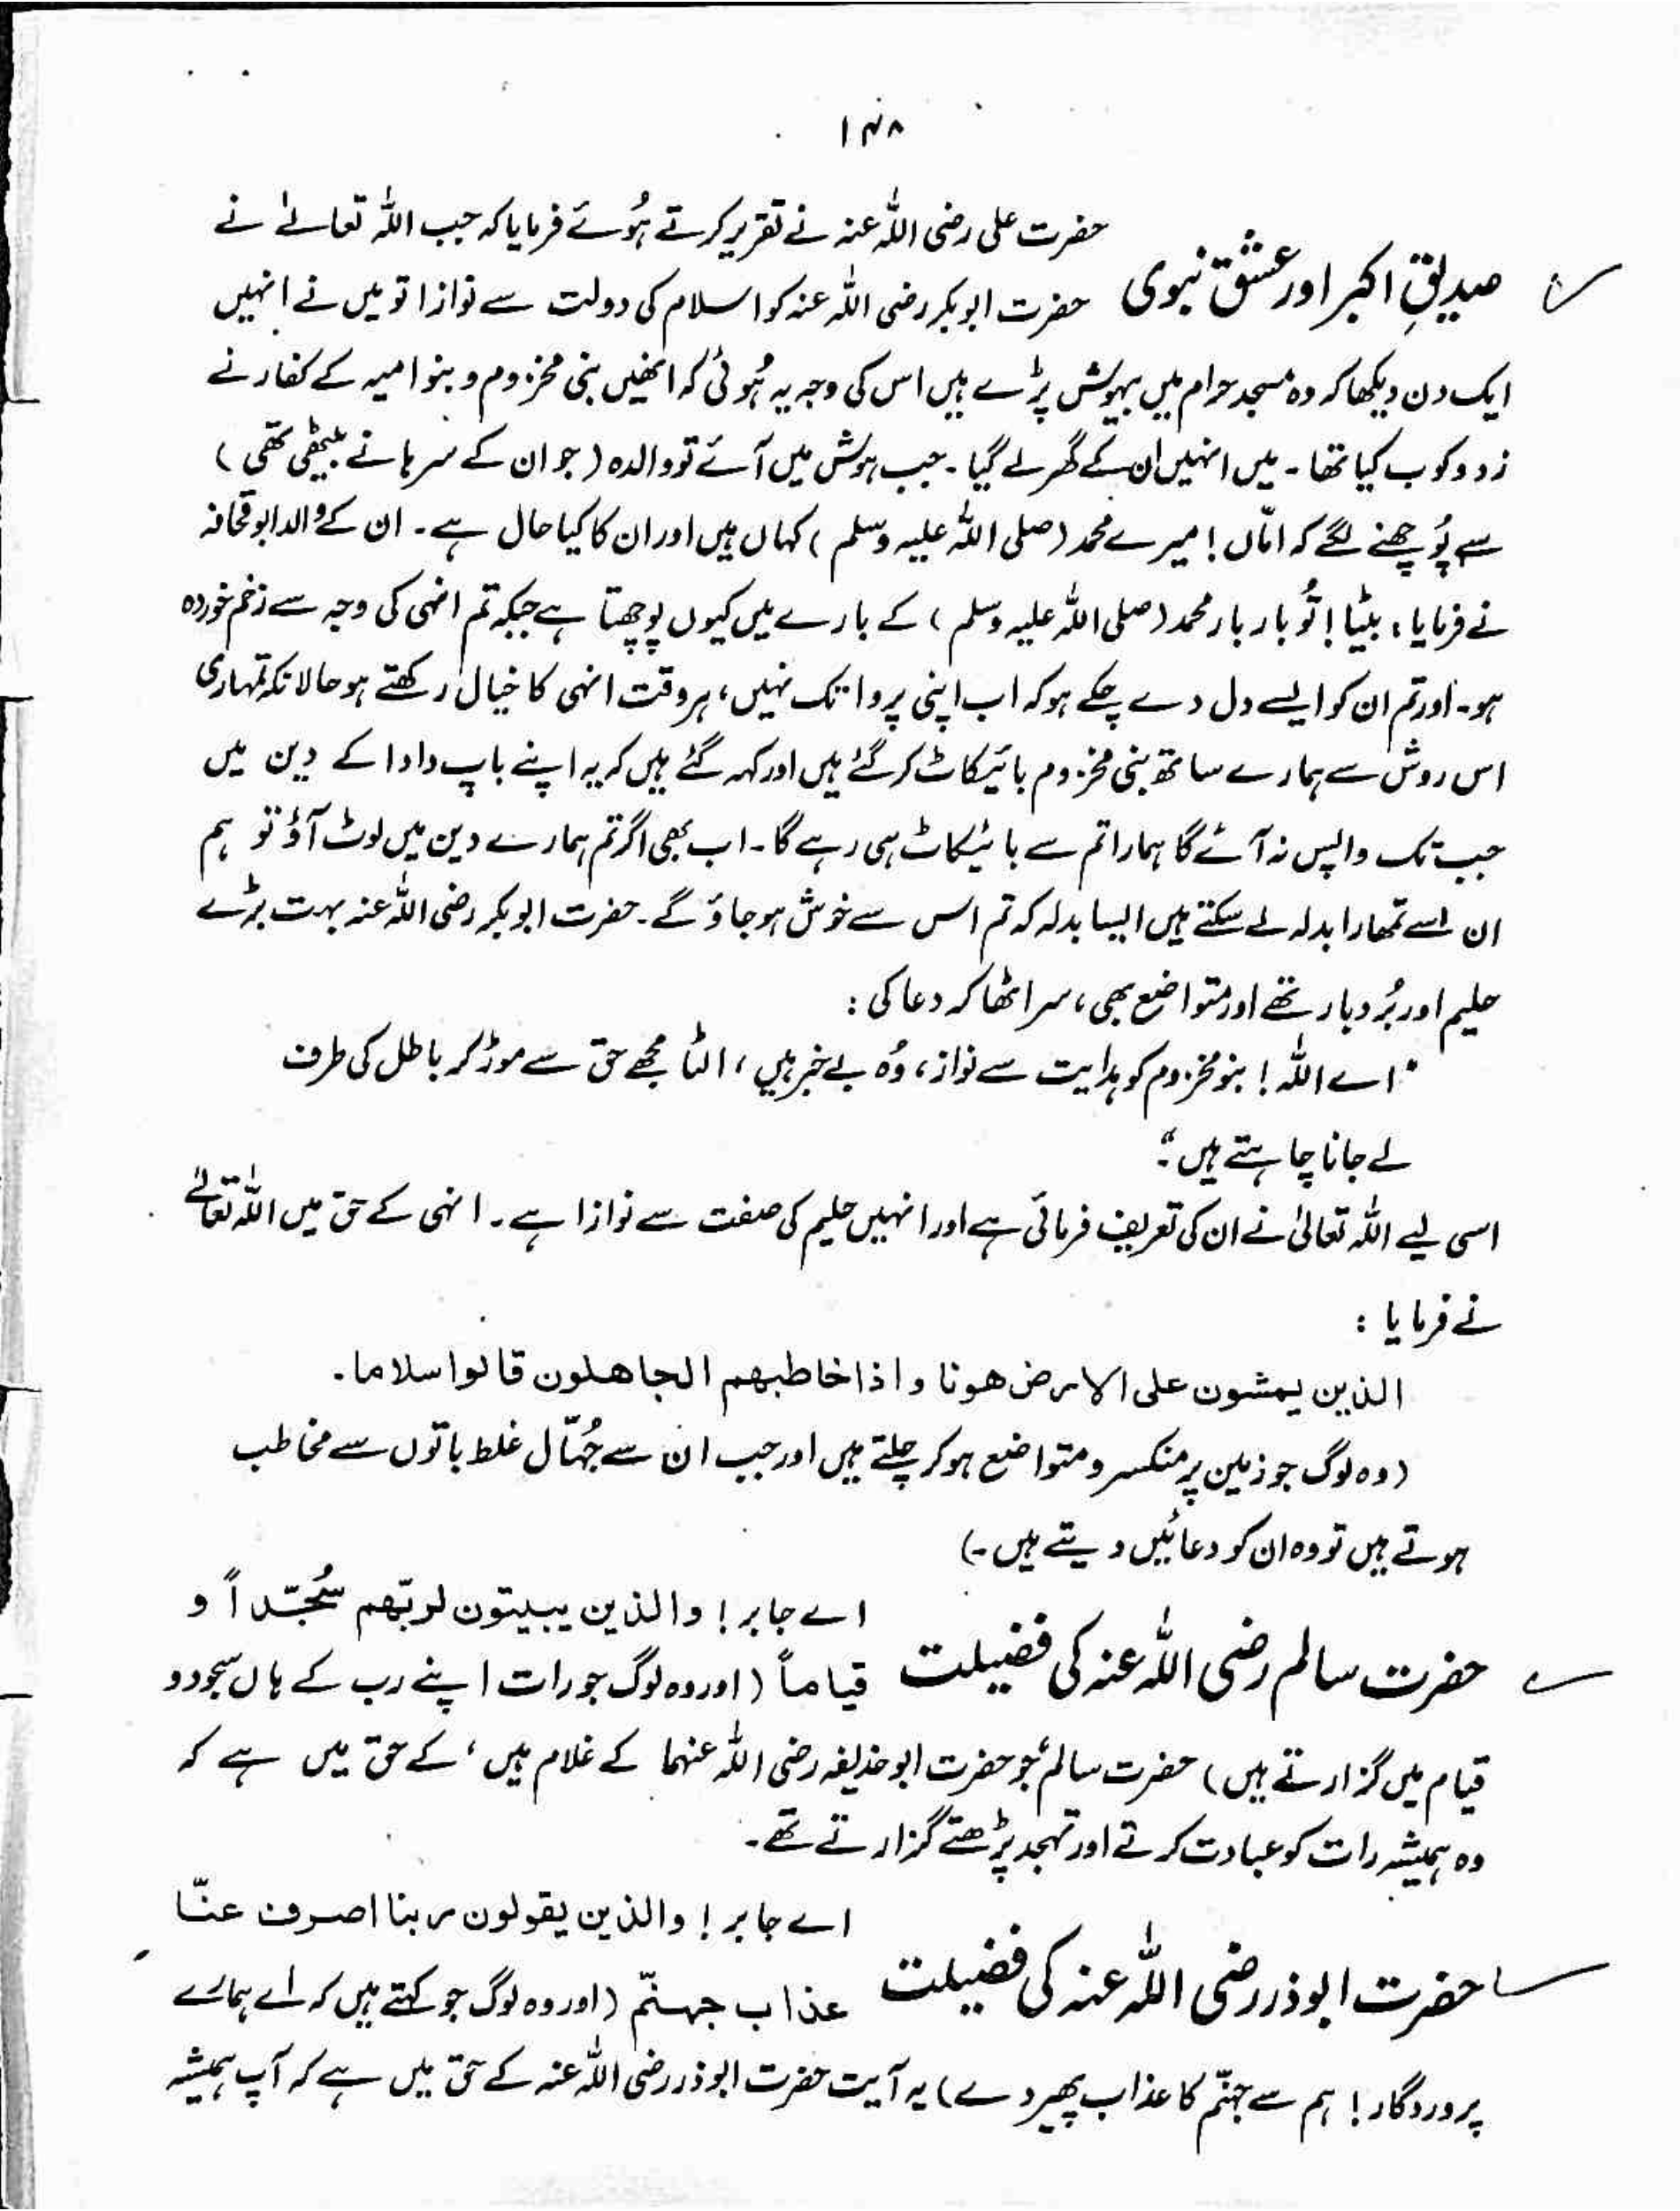 ۱۴۸
حضرت علی رضی اللہ عنہ نے تقریر کرتے ہُوئے فرمایا کہ جب اللہ تعالےٰ نے
صدیقِ اکبر اور عشقِ نبوی
حضرت ابوبکر رضی اللہ عنہ کو اسلام کی دولت سے نوازا تو میں نے انہیں
ایک دن دیکھا کہ وہ مسجد حرام میں بیہوش پڑے ہیں اس کی وجہ یہ ہُوئی کہ انھیں بنی مخزوم و بنو امیہ کے کفار نے
زد و کوب کیا تھا ۔ میں انہیں ان کے گھر لے گیا ۔ جب ہوش میں آئے تو والدہ (جو ان کے سرہانے بیٹھی تھی)
سے پُوچھنے لگے کہ امّاں ! میرے محمد (صلی اللہ علیہ وسلم) کہاں ہیں اور ان کا کیا حال ہے ۔ ان کے والد ابو قحافہ
نے فرمایا ، بیٹیا ! تُو بار بار محمد (صلی اللہ علیہ وسلم) کے بارے میں کیوں پوچھتا ہے جبکہ تم انہی کی وجہ سے زخم خوردہ
ہو ۔ اور تم ان کو ایسے دل دے چکے ہو کہ اب اپنی پروا تک نہیں ، ہر وقت انہی کا خیال رکھتے ہو حالانکہ تمہاری
اس روش سے ہمارے ساتھ بنی مخزوم بائیکاٹ کر گئے ہیں اور کہہ گئے ہیں کہ یہ اپنے باپ دادا کے دین میں
جب تک واپس نہ آئے گا ہمارا تم سے بائیکاٹ ہی رہے گا ۔ اب بھی اگر تم ہمارے دین میں لوٹ آؤ تو ہم
ان سے تمھارا بدلہ لے سکتے ہیں ایسا بدلہ کہ تم اس سے خوش ہو جاؤ گے ۔ حضرت ابوبکر رضی اللہ عنہ بہت بڑے
حلیم اور بُردبار تھے اور متواضع بھی ، سر اٹھا کر دعا کی :
"اے اللہ ! بنو مخزوم کو ہدایت سے نواز ، وُہ بے خبر ہیں ، الٹا مجھے حق سے موڑ کر باطل کی طرف
لے جانا چاہتے ہیں ۔"
اسی لیے اللہ تعالیٰ نے ان کی تعریف فرمائی ہے اور انہیں حلیم کی صفت سے نوازا ہے ۔ انہی کے حق میں اللہ تعالےٰ
نے فرمایا :
الذین یمشون علی الارض ھونا و اذا خاطبھم الجاھلون قالوا سلاما ۔
(وہ لوگ جو زمین پر منکسر و متواضع ہو کر چلتے ہیں اور جب ان سے جُہّال غلط باتوں سے مخاطب
ہوتے ہیں تو وہ ان کو دعائیں دیتے ہیں ۔)
اے جابر ! والذین یبیتون لربّھم سُجّداً و
حضرت سالم رضی اللہ عنہ کی فضیلت
قیاماً (اور وہ لوگ جو رات اپنے رب کے ہاں سجود و
قیام میں گزارتے ہیں) حضرت سالمؓ جو حضرت ابو حذیفہ رضی اللہ عنہما کے غلام ہیں ، کے حق میں ہے کہ
وہ ہمیشہ رات کو عبادت کرتے اور تہجد پڑھتے گزارتے تھے ۔
اے جابر ! والذین یقولون ربنا اصرف عنّا
حضرت ابوذر رضی اللہ عنہ کی فضیلت
عذاب جہنّم (اور وہ لوگ جو کہتے ہیں کہ اے ہمارے
پروردگار ! ہم سے جہنّم کا عذاب پھیر دے) یہ آیت حضرت ابوذر رضی اللہ عنہ کے حق میں ہے کہ آپ ہمیشہ